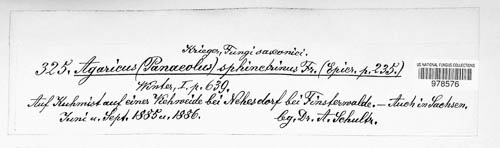 Krieger, Fungi saxonici.
325. Agaricus (Panaeolus) sphinctrinus Fr. (Epicr. p. 235.)
Winter, I. p. 639.
Auf Kuhmist auf einer Viehweide bei Nehesdorf bei Finsterwalde. — Auch in Sachsen.
Juni u. Sept. 1885 u. 1886. lg. Dr. A. Schultz.
US NATIONAL FUNGUS COLLECTIONS
978576